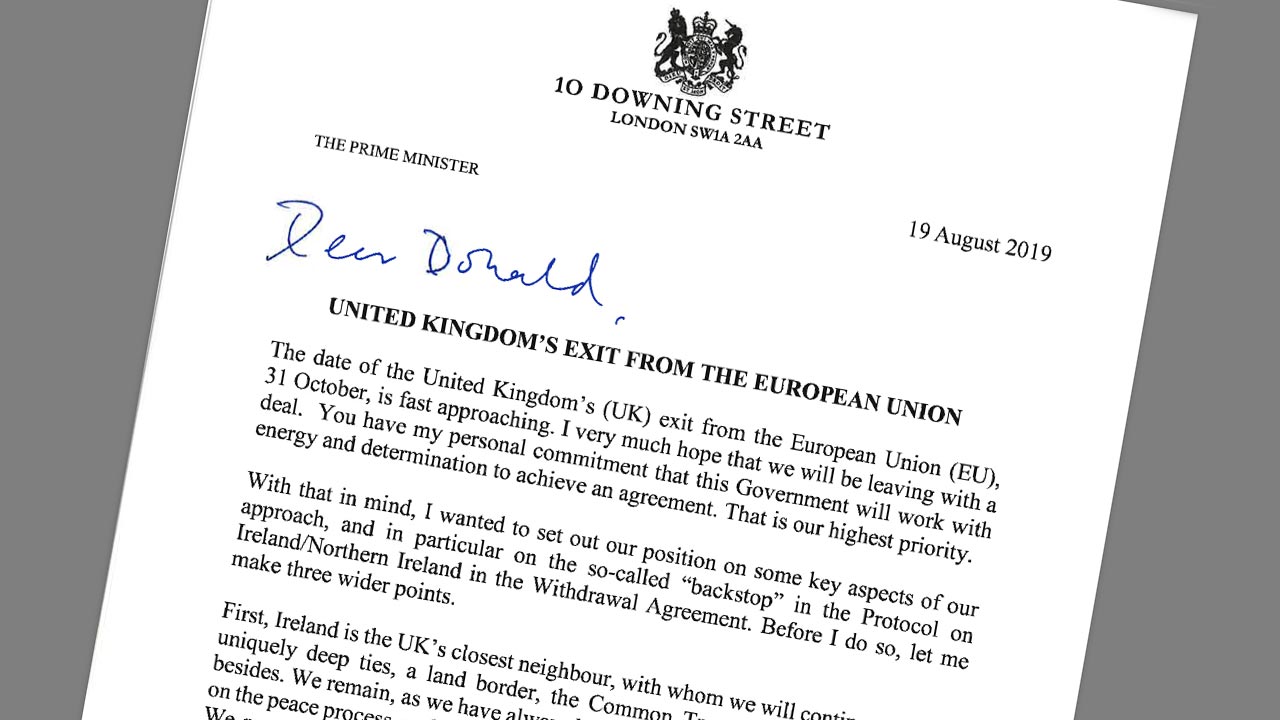 10 DOWNING STREET
LONDON SW1A 2AA
THE PRIME MINISTER
19 August 2019
Dear Donald,
UNITED KINGDOM’S EXIT FROM THE EUROPEAN UNION
The date of the United Kingdom’s (UK) exit from the European Union (EU),
31 October, is fast approaching. I very much hope that we will be leaving with a
deal. You have my personal commitment that this Government will work with
energy and determination to achieve an agreement. That is our highest priority.
With that in mind, I wanted to set out our position on some key aspects of our
approach, and in particular on the so-called “backstop” in the Protocol on
Ireland/Northern Ireland in the Withdrawal Agreement. Before I do so, let me
make three wider points.
First, Ireland is the UK’s closest neighbour, with whom we will
uniquely deep ties, a land border, the Common
besides. We remain, as we have
on the peace process
We